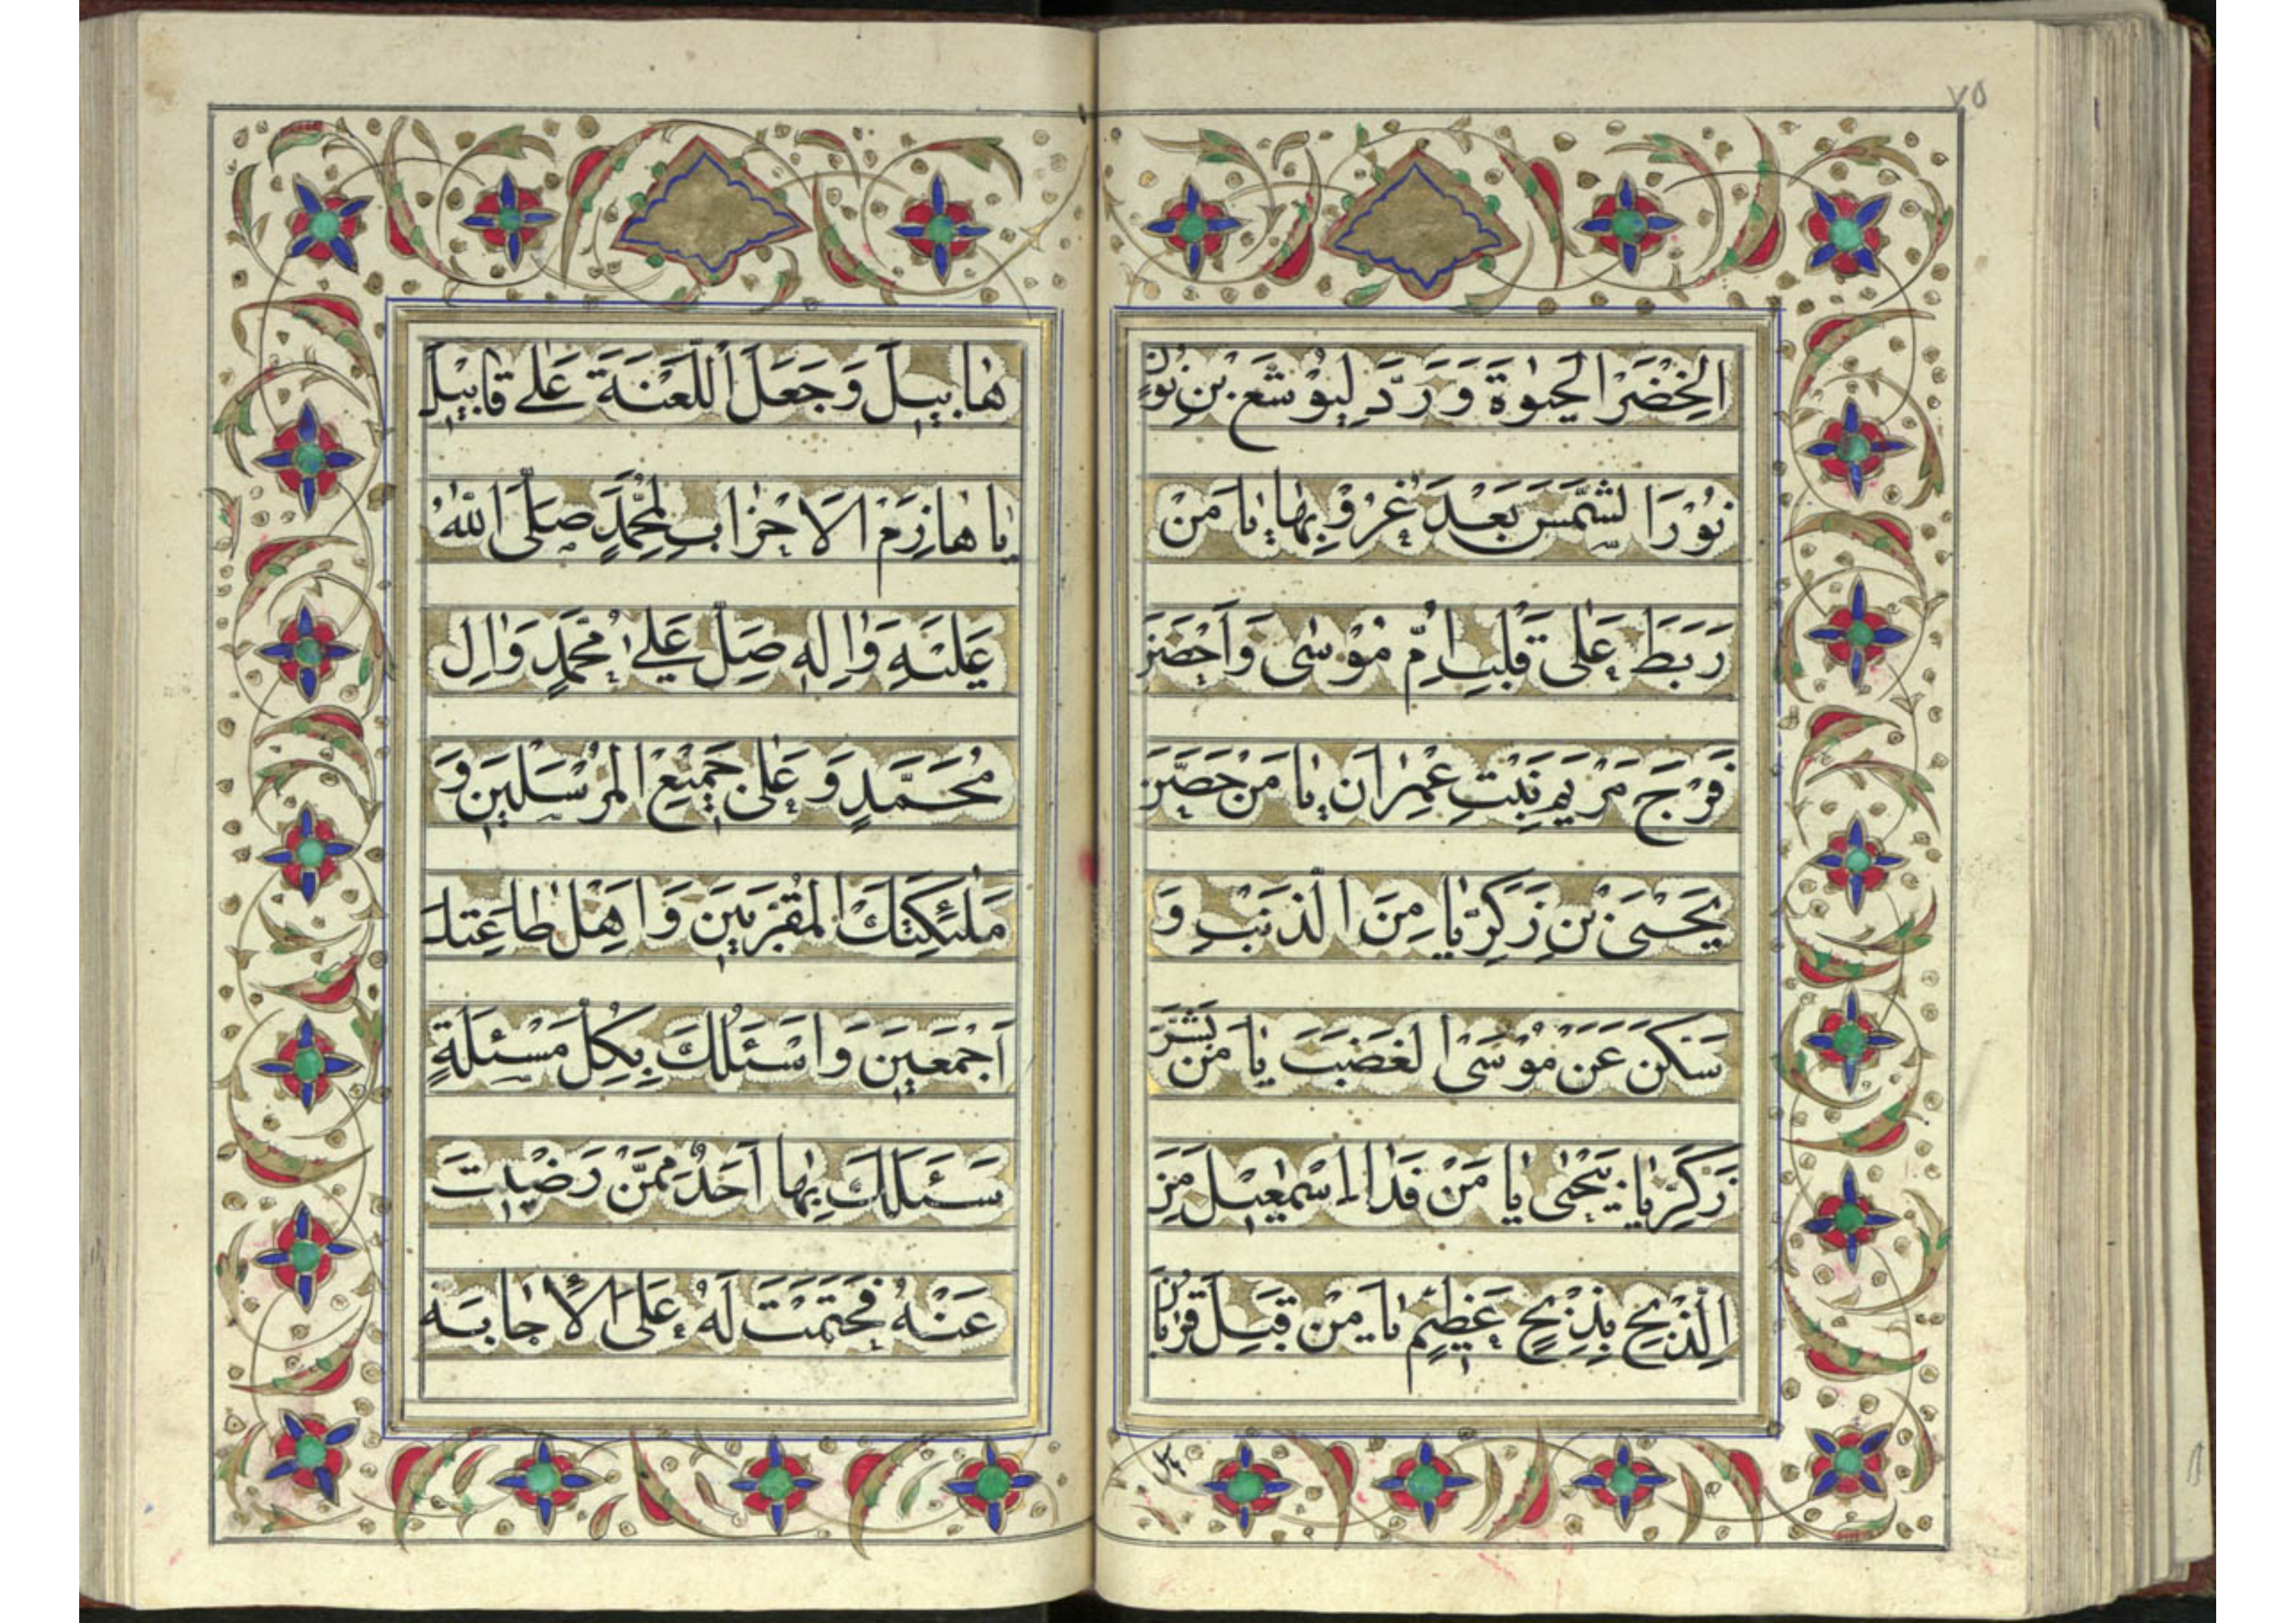 ٧٥
الْخِضْرَ الْحَيٰوةَ وَرَدَّ لِيُوْشَعَ بْنِ نُوْنٍ
نُوْرَ الشَّمْسِ بَعْدَ غُرُوْبِهٰا يٰا مَنْ
رَبَطَ عَلٰى قَلْبِ اُمِّ مُوْسٰى وَاَحْصَنَ
فَرْجَ مَرْيَمَ بِنْتِ عِمْرٰانَ يٰا مَنْ حَصَّنَ
يَحْيَى بْنَ زَكَرِيّٰا مِنَ الذَّنْبِ وَ
سَكَّنَ عَنْ مُوْسَى الْغَضَبَ يٰا مَنْ بَشَّرَ
زَكَرِيّٰا بِيَحْيٰى يٰا مَنْ فَدٰا اِسْمٰعِيْلَ مِنَ
الذَّبْحِ بِذِبْحٍ عَظِيْمٍ يٰا مَنْ قَبِلَ قُرْبٰانَ
هٰابِيْلَ وَجَعَلَ اللَّعْنَةَ عَلٰى قٰابِيْلَ
يٰا هٰازِمَ الْاَحْزٰابِ لِمُحَمَّدٍ صَلَّى اللّٰهُ
عَلَيْهِ وَاٰلِهِ صَلِّ عَلٰى مُحَمَّدٍ وَاٰلِ
مُحَمَّدٍ وَعَلٰى جَمِيْعِ الْمُرْسَلِيْنَ وَ
مَلٰئِكَتِكَ الْمُقَرَّبِيْنَ وَاَهْلِ طٰاعَتِكَ
اَجْمَعِيْنَ وَاَسْئَلُكَ بِكُلِّ مَسْئَلَةٍ
سَئَلَكَ بِهٰا اَحَدٌ مِمَّنْ رَضِيْتَ
عَنْهُ فَحَتَمْتَ لَهُ عَلَى الْاِجٰابَةِ